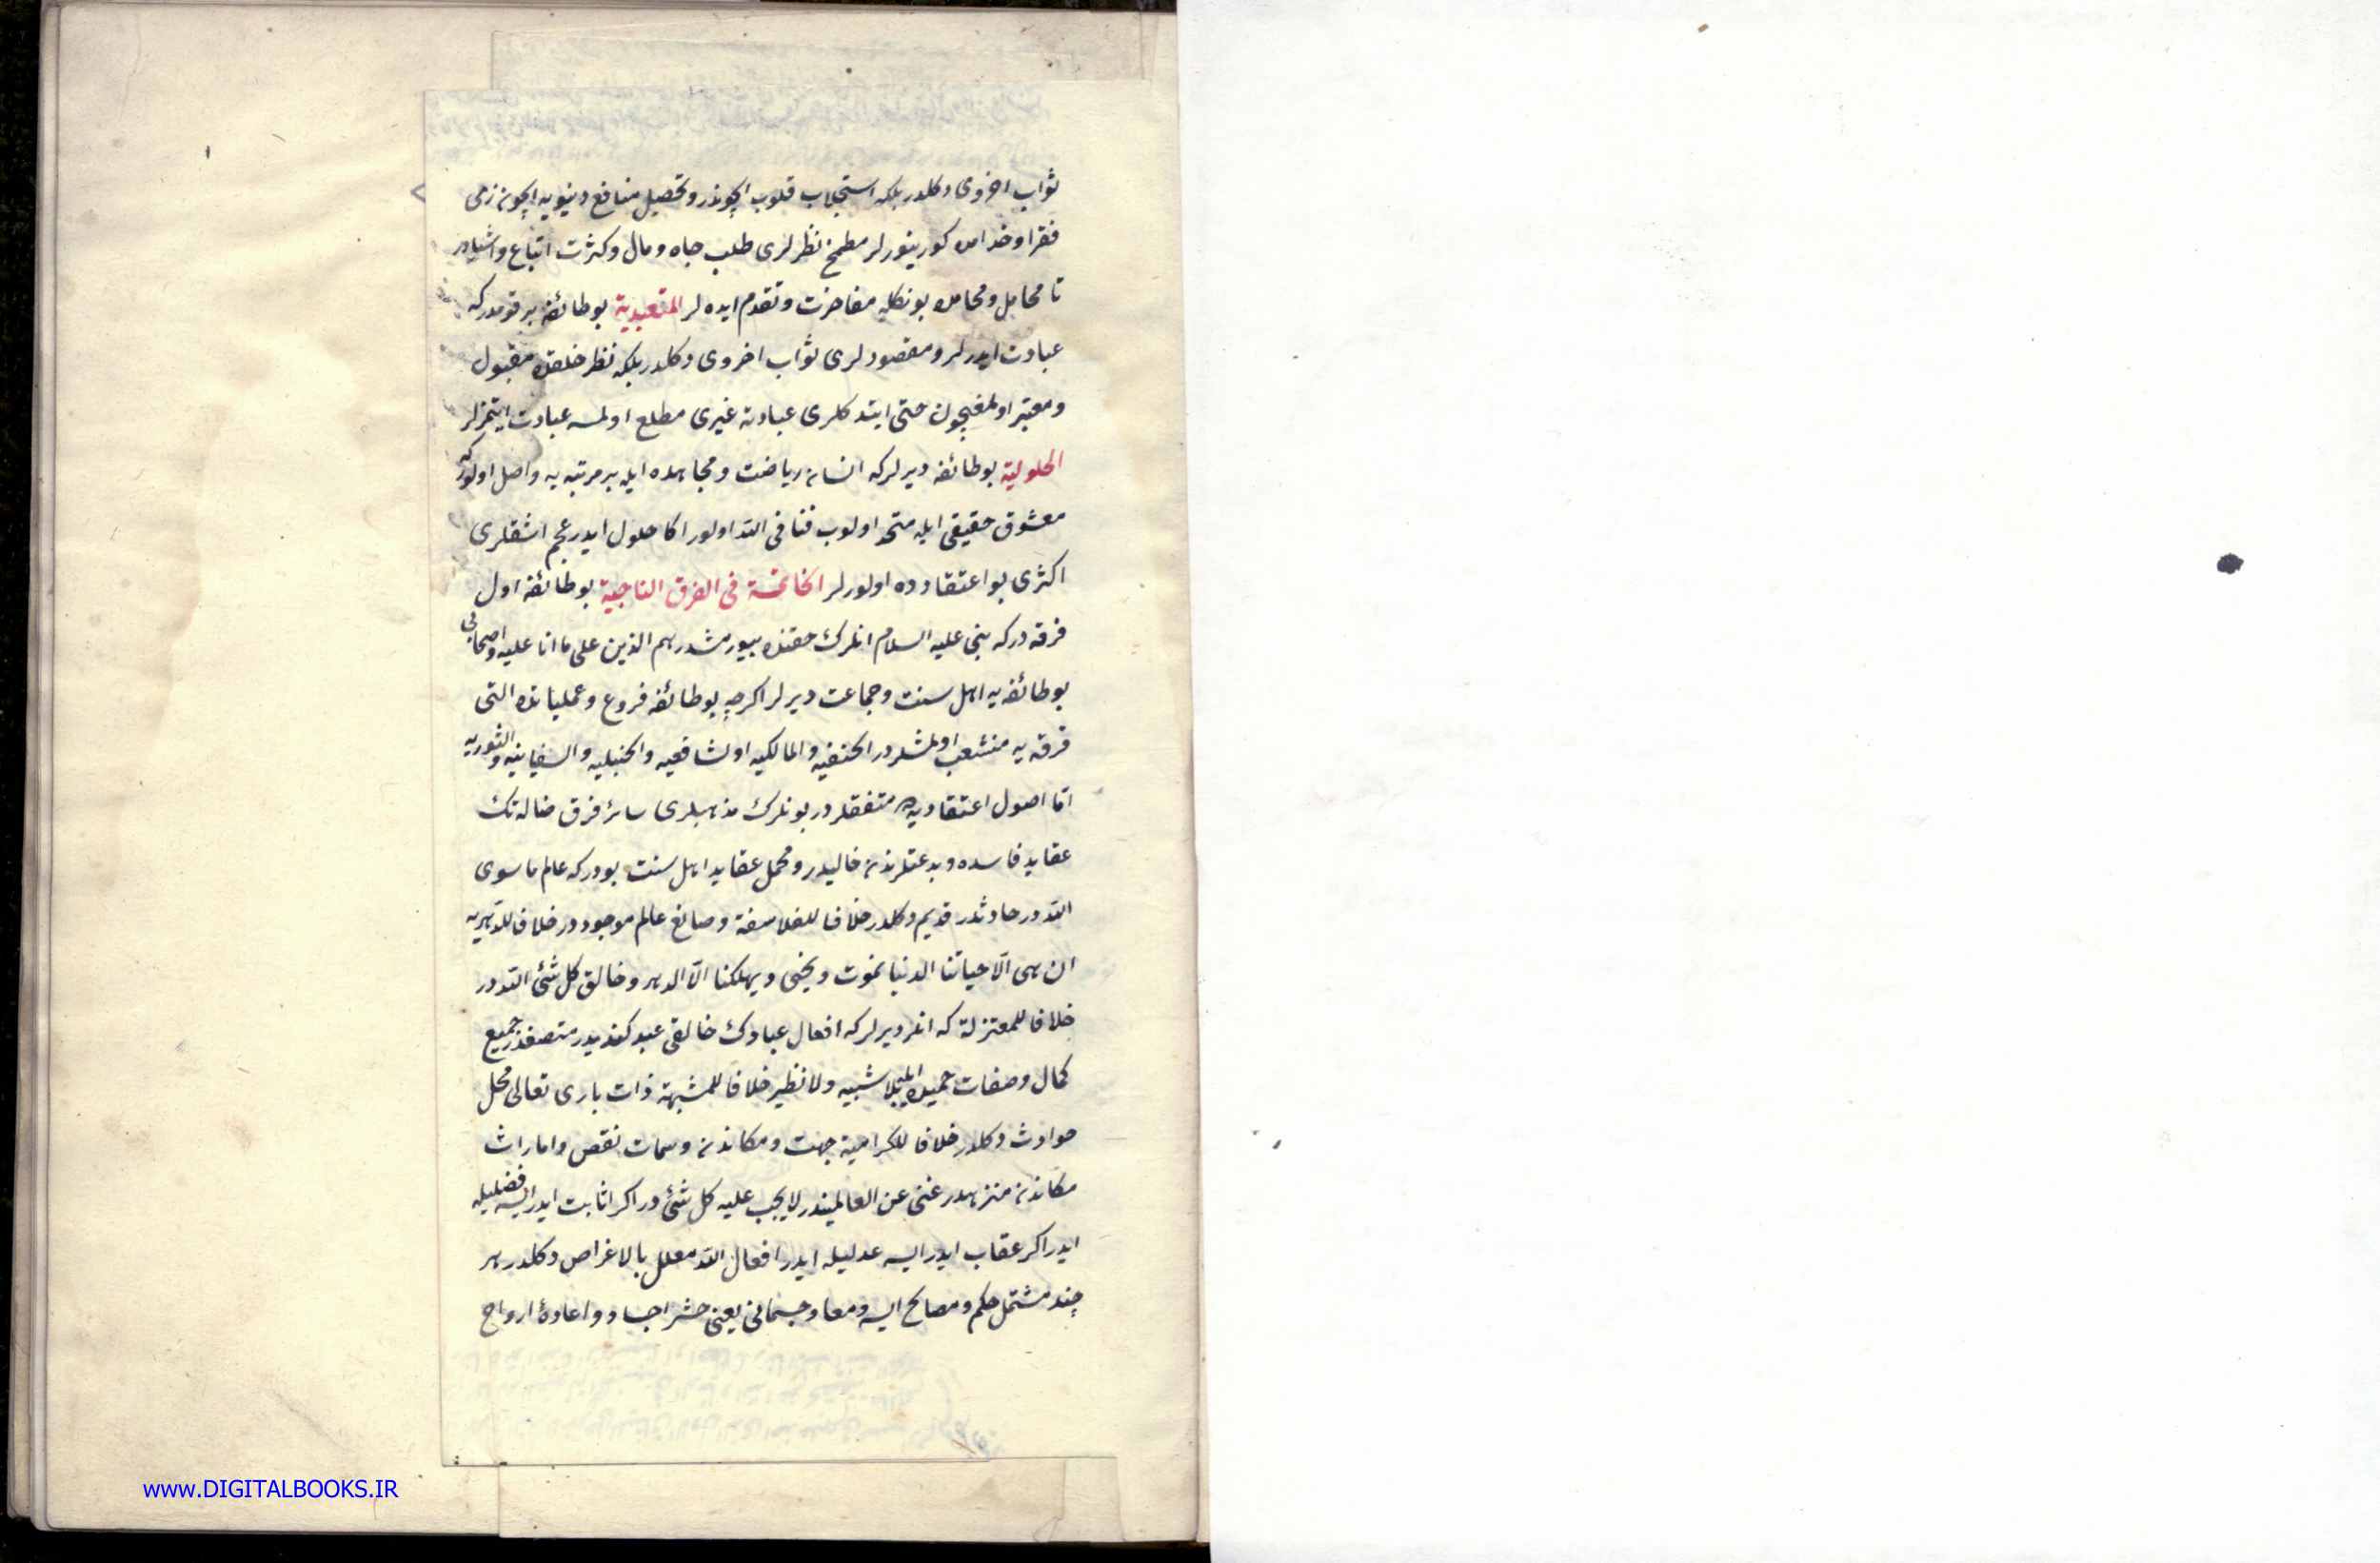 ثواب اخروی دكلدر بلكه استجلاب قلوب ایچوندر وتحصیل منافع دنیویه ایچون زی
فقرا وخدامه كورینورلر مطمح نظرلری طلب جاه ومال وكثرت اتباع واشیادر
تا محافل ومحامده بونكله مفاخرت وتقدم ایده لر المتعبدیة بو طائفه بر قومدركه
عبادت ایدرلر ومقصودلری ثواب اخروی دكلدر بلكه نظر خلقده مقبول
ومعتبر اولمغیچون حتی ایتدكلری عبادته غیری مطلع اولمسه عبادت ایتمزلر
الحلولیة بو طائفه دیرلركه انسان ریاضت ومجاهده ایله بر مرتبه یه واصل اولوركه
معشوق حقیقی ایله متحد اولوب فنا فی الله اولور اكا حلول ایدر عجم اشقلری
اكثری بو اعتقادده اولورلر الخاتمة فی الفرق الناجیة بو طائفه اول
فرقه دركه نبی علیه السلام انلرك حقنده بیورمشدر هم الذین علی ما انا علیه واصحابی
بو طائفه یه اهل سنت وجماعت دیرلر اكرچه بو طائفه فروع وعملیاتده التی
فرقه یه منشعب اولمشلردر الحنفیه والمالكیه والشافعیه والحنبلیه والسفیانیه والثوریه
اما اصول اعتقادیه ده متفقلردر بونلرك مذهبلری سائر فرق ضاله نك
عقاید فاسده وبدعتلرندن خالیدر ومجمل عقاید اهل سنت بودركه عالم ما سوی
الله در حادثدر قدیم دكلدر خلافا للفلاسفة وصانع عالم موجوددر خلافا للدهریه
ان هی الا حیاتنا الدنیا نموت ونحیی ویهلكنا الا الدهر وخالق كل شئ الله در
خلافا للمعتزلة كه انلر دیرلركه افعال عبادك خالقی عبد كندیدر متصفدر جمیع
كمال وصفات حمیده ایله بلا شبیه ولا نظیر خلافا للمشبهة ذات باری تعالی محل
حوادث دكلدر خلافا للكرامیة جهت ومكاندن وسمات نقص وامارات
مكاندن منزهدر غنی عن العالمیندر لا یجب علیه كل شئ در اكر اثابت ایدرایسه فضلیله
ایدر اكر عقاب ایدرایسه عدلیله ایدر افعال الله معلل بالاغراض دكلدر هر
چند مشتمل حكم ومصالح ایسه ومعاد جسمانی یعنی حشر اجساد واعادۀ ارواح
www.DIGITALBOOKS.IR